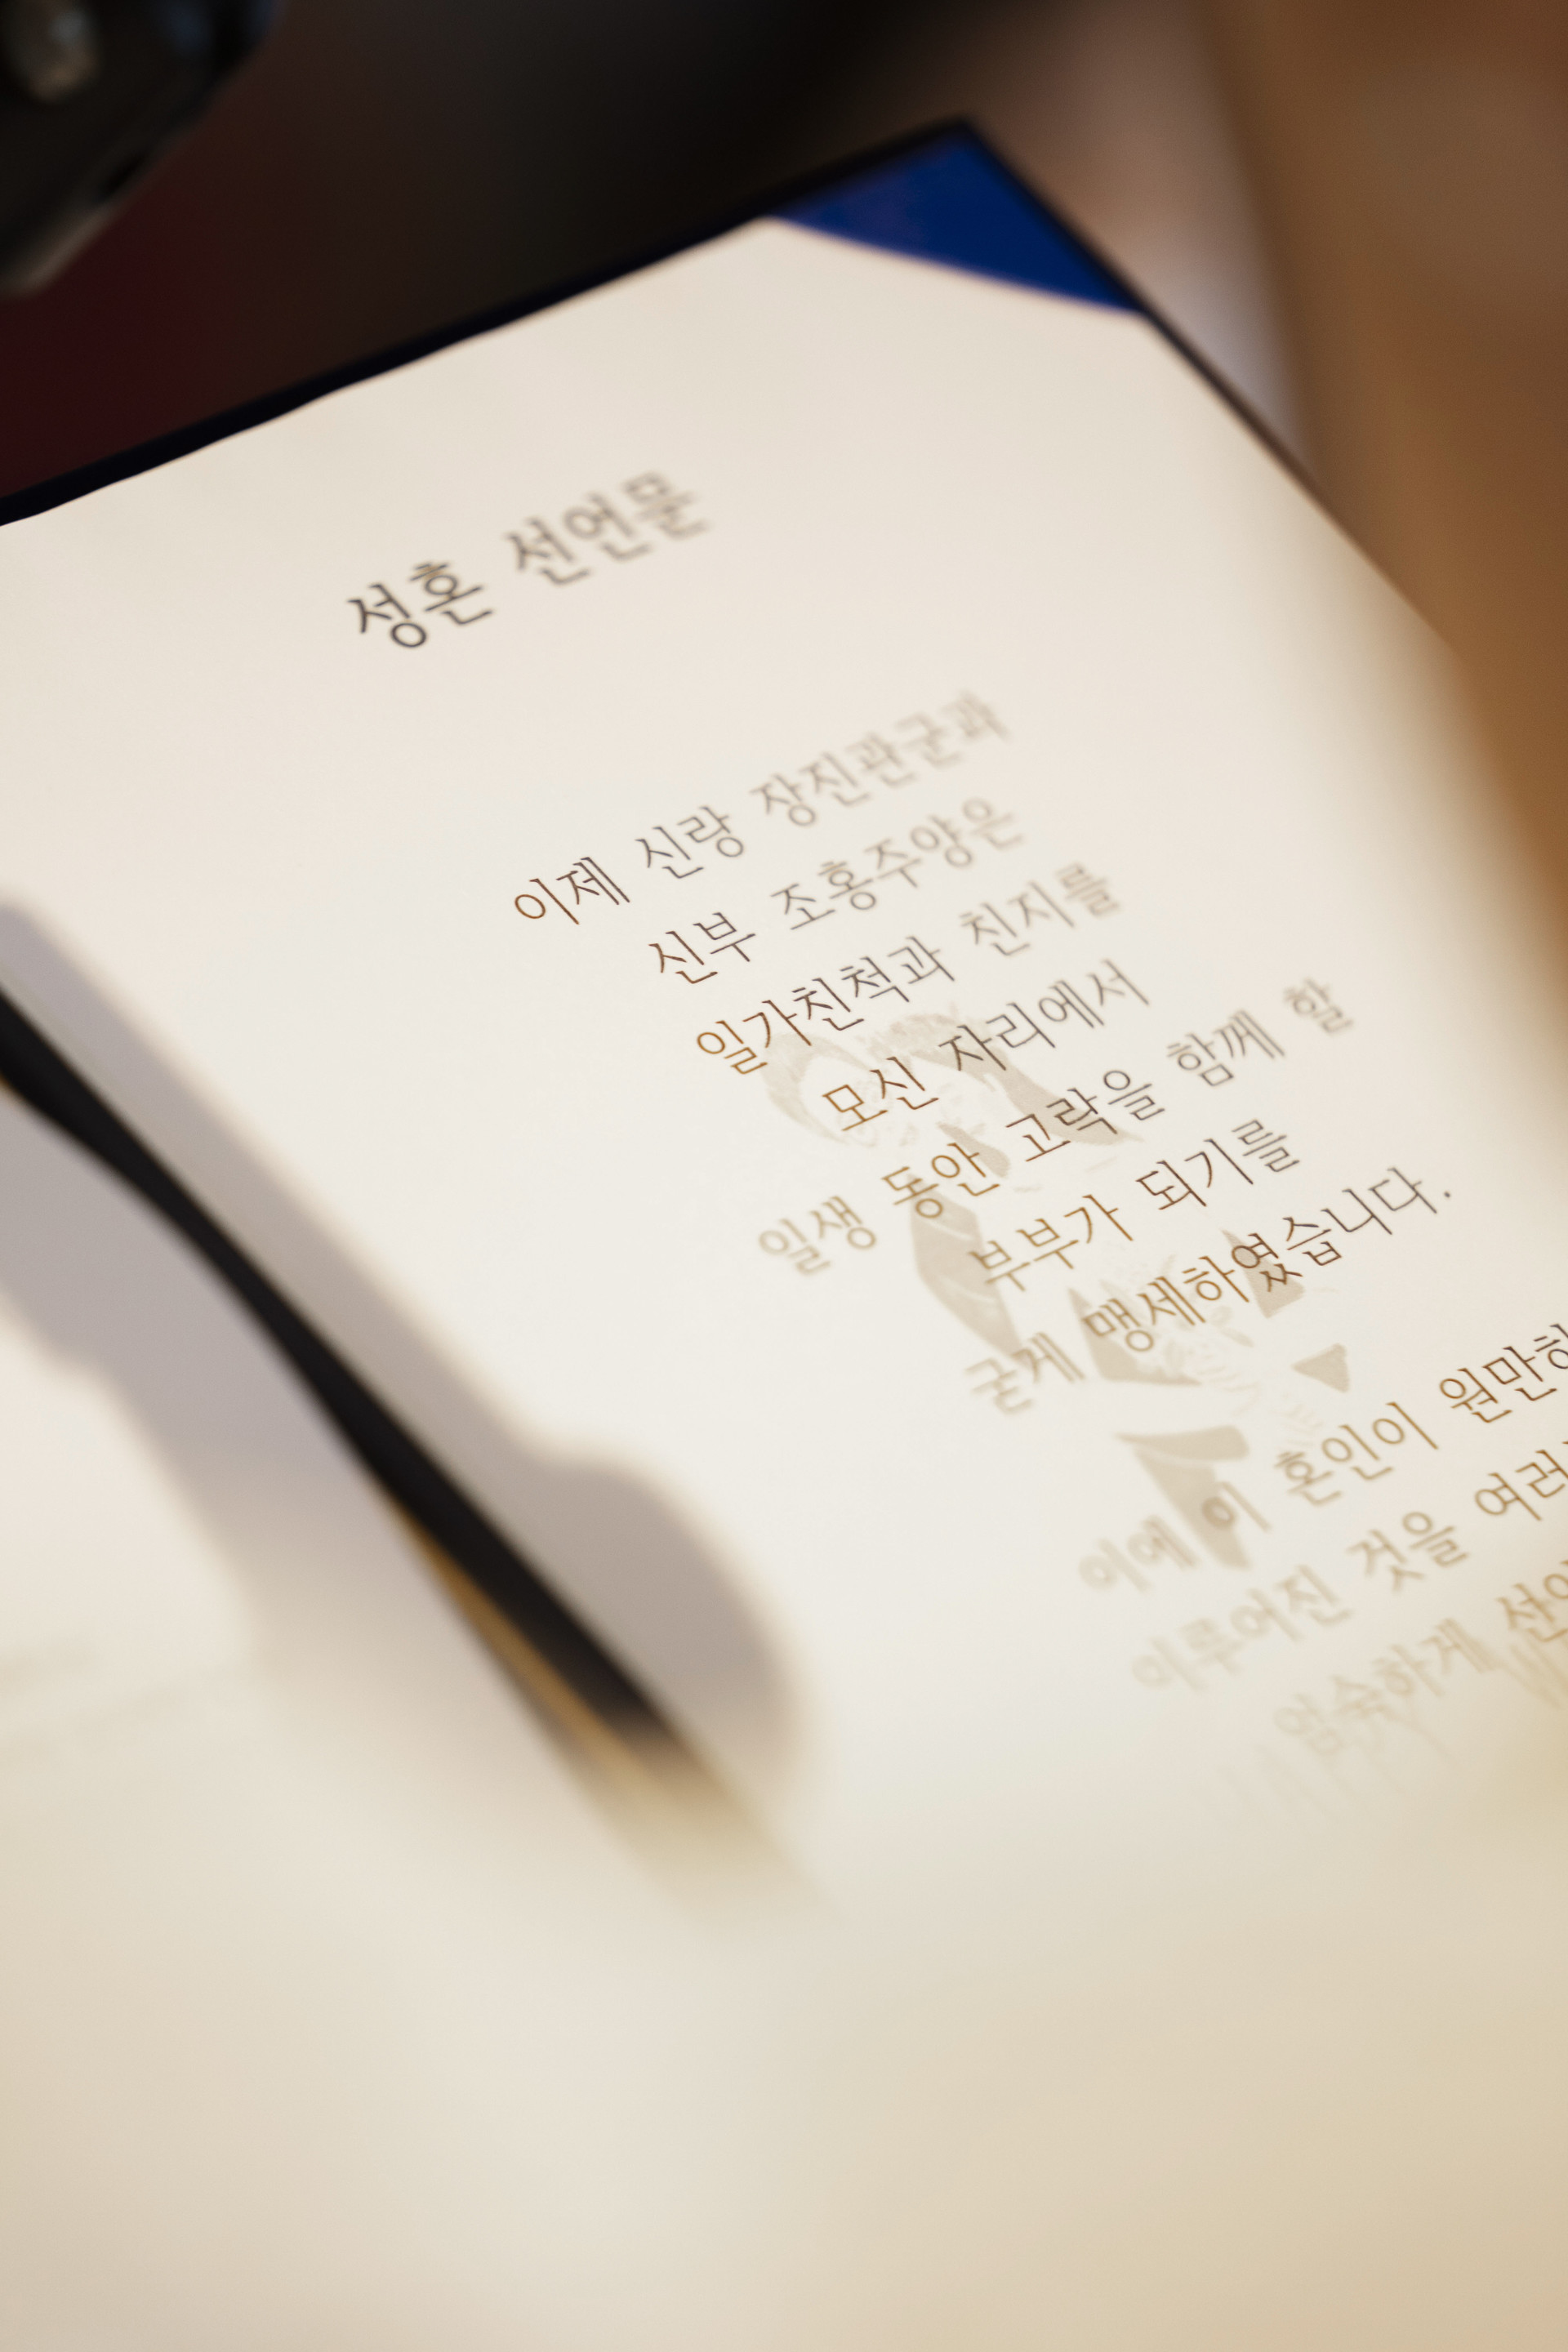 성혼 선언문
이제 신랑 장진관군과
신부 조홍주양은
일가친척과 친지를
모신 자리에서
일생 동안 고락을 함께 할
부부가 되기를
굳게 맹세하였습니다.
이에 이 혼인이
이루어진 것을
엄숙하게